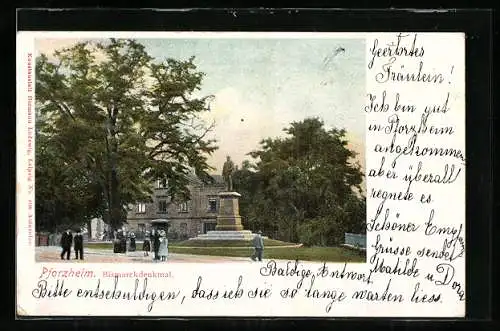 Geehrtes
Fräulein!
Ich bin gut
in Pforzheim
angekommen
aber überall
regnete es.
Schöner Empfang
Grüsse sendet
Mathilde u Dora
Pforzheim. Bismarckdenkmal.
Baldige Antwort.
Bitte entschuldigen, dass ich sie so lange warten liess.
Kunstanstalt Hermann Ludewig, Leipzig